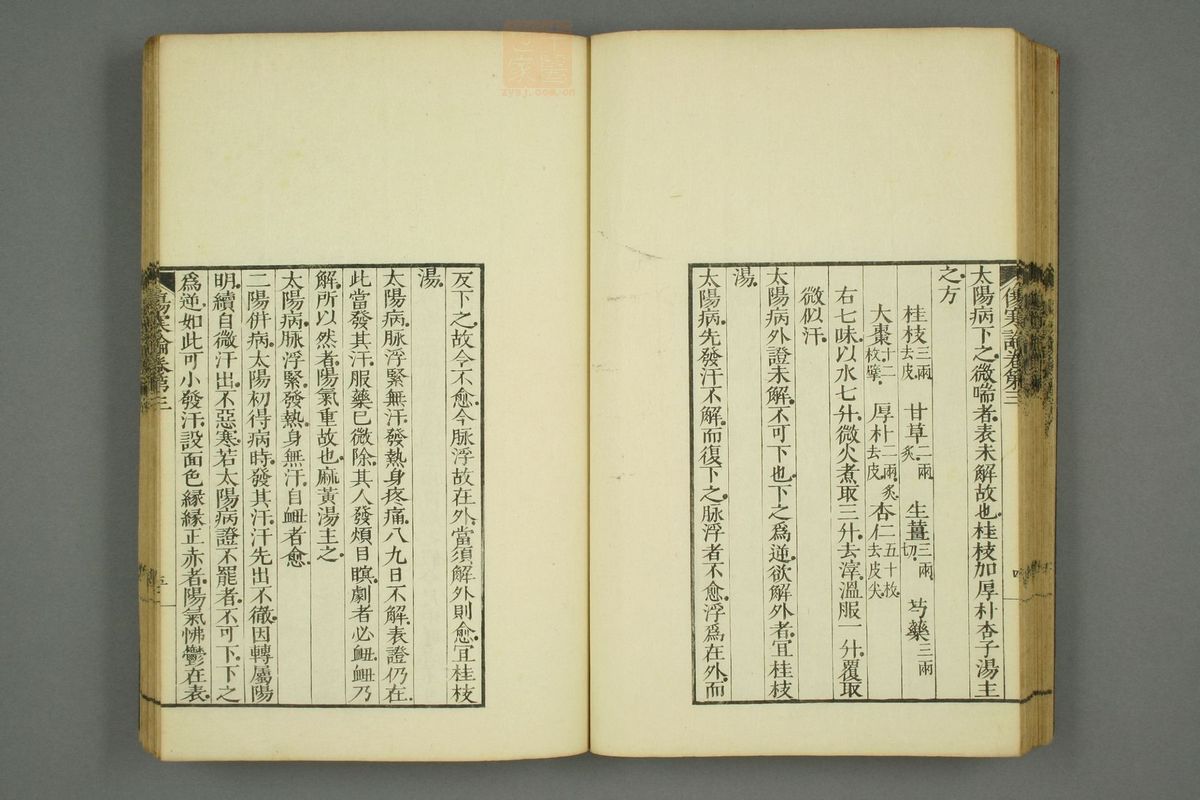 太陽病下之。微喘者。表未解故也。桂枝加厚朴杏子湯主
之。方
桂枝三兩去皮 甘草二兩炙。 生薑三兩切。 芍藥三兩
大棗十二枚擘。 厚朴二兩。炙。去皮。 杏仁五十枚。去皮尖。
右七味。以水七升。微火煮取三升。去滓。溫服一升。覆取
微似汗。
太陽病外證未解。不可下也。下之爲逆。欲解外者。宜桂枝
湯。
太陽病。先發汗不解。而復下之。脉浮者不愈。浮爲在外。而
反下之。故令不愈。今脉浮故在外。當須解外則愈。宜桂枝
湯。
太陽病。脉浮緊無汗。發熱身疼痛。八九日不解。表證仍在。
此當發其汗。服藥已微除。其人發煩目瞑。劇者必衄。衄乃
解。所以然者。陽氣重故也。麻黃湯主之。
太陽病。脉浮緊。發熱。身無汗。自衄者愈。
二陽併病。太陽初得病時。發其汗。汗先出不徹。因轉屬陽
明。續自微汗出。不惡寒。若太陽病證不罷者。不可下。下之
爲逆。如此可小發汗。設面色緣緣正赤者。陽氣怫鬱在表。
傷寒論卷第三
傷寒論卷第三
zysj.com.cn